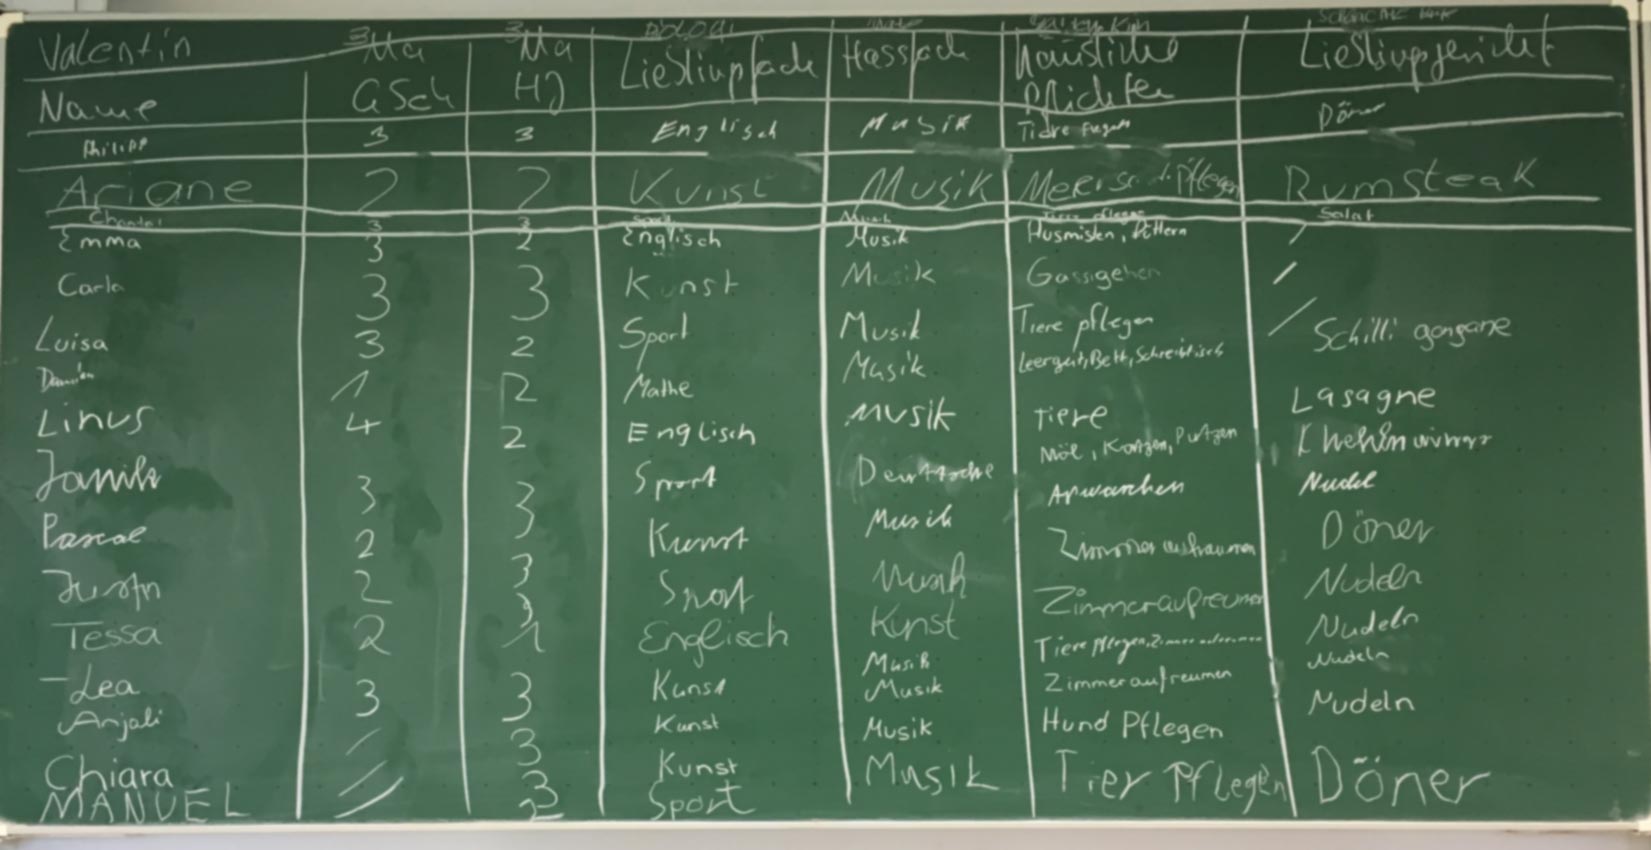 Valentin 3 3
Ma Ma Lieblingsfach Hassfach häusliche Lieblingsgericht
Name GSch HJ Pflichten
Philipp 3 3 Englisch Musik Tiere Döner
Ariane 2 2 Kunst Musik pflegen Rumsteak
Chantal 3 3 Sport Musik Tiere pflegen Salat
Emma 3 2 Englisch Musik Ausmisten, Füttern /
Carla 3 3 Kunst Musik Gassigehen /
Luisa 3 2 Sport Musik Tiere pflegen / Schilli
Damian 1 2 Mathe Musik Leergut, Bett, Schreibtisch
Linus 4 2 Englisch Musik Tiere Lasagne
Müll, Katzen, Putzen
3 3 Sport Nudel
Pascal 2 3 Kunst Musik Zimmer aufräumen Döner
Justin 2 3 Sport Musik Zimmeraufreumen Nudeln
Tessa 2 1 Englisch Kunst Tiere Pflegen, Nudeln
Musik Nudeln
Lea 3 3 Kunst Musik Zimmeraufreumen
Anjali / 3 Kunst Musik Hund Pflegen Nudeln
Chiara / 3 Kunst Musik Tier Pflegen Döner
MANUEL / 2 Sport